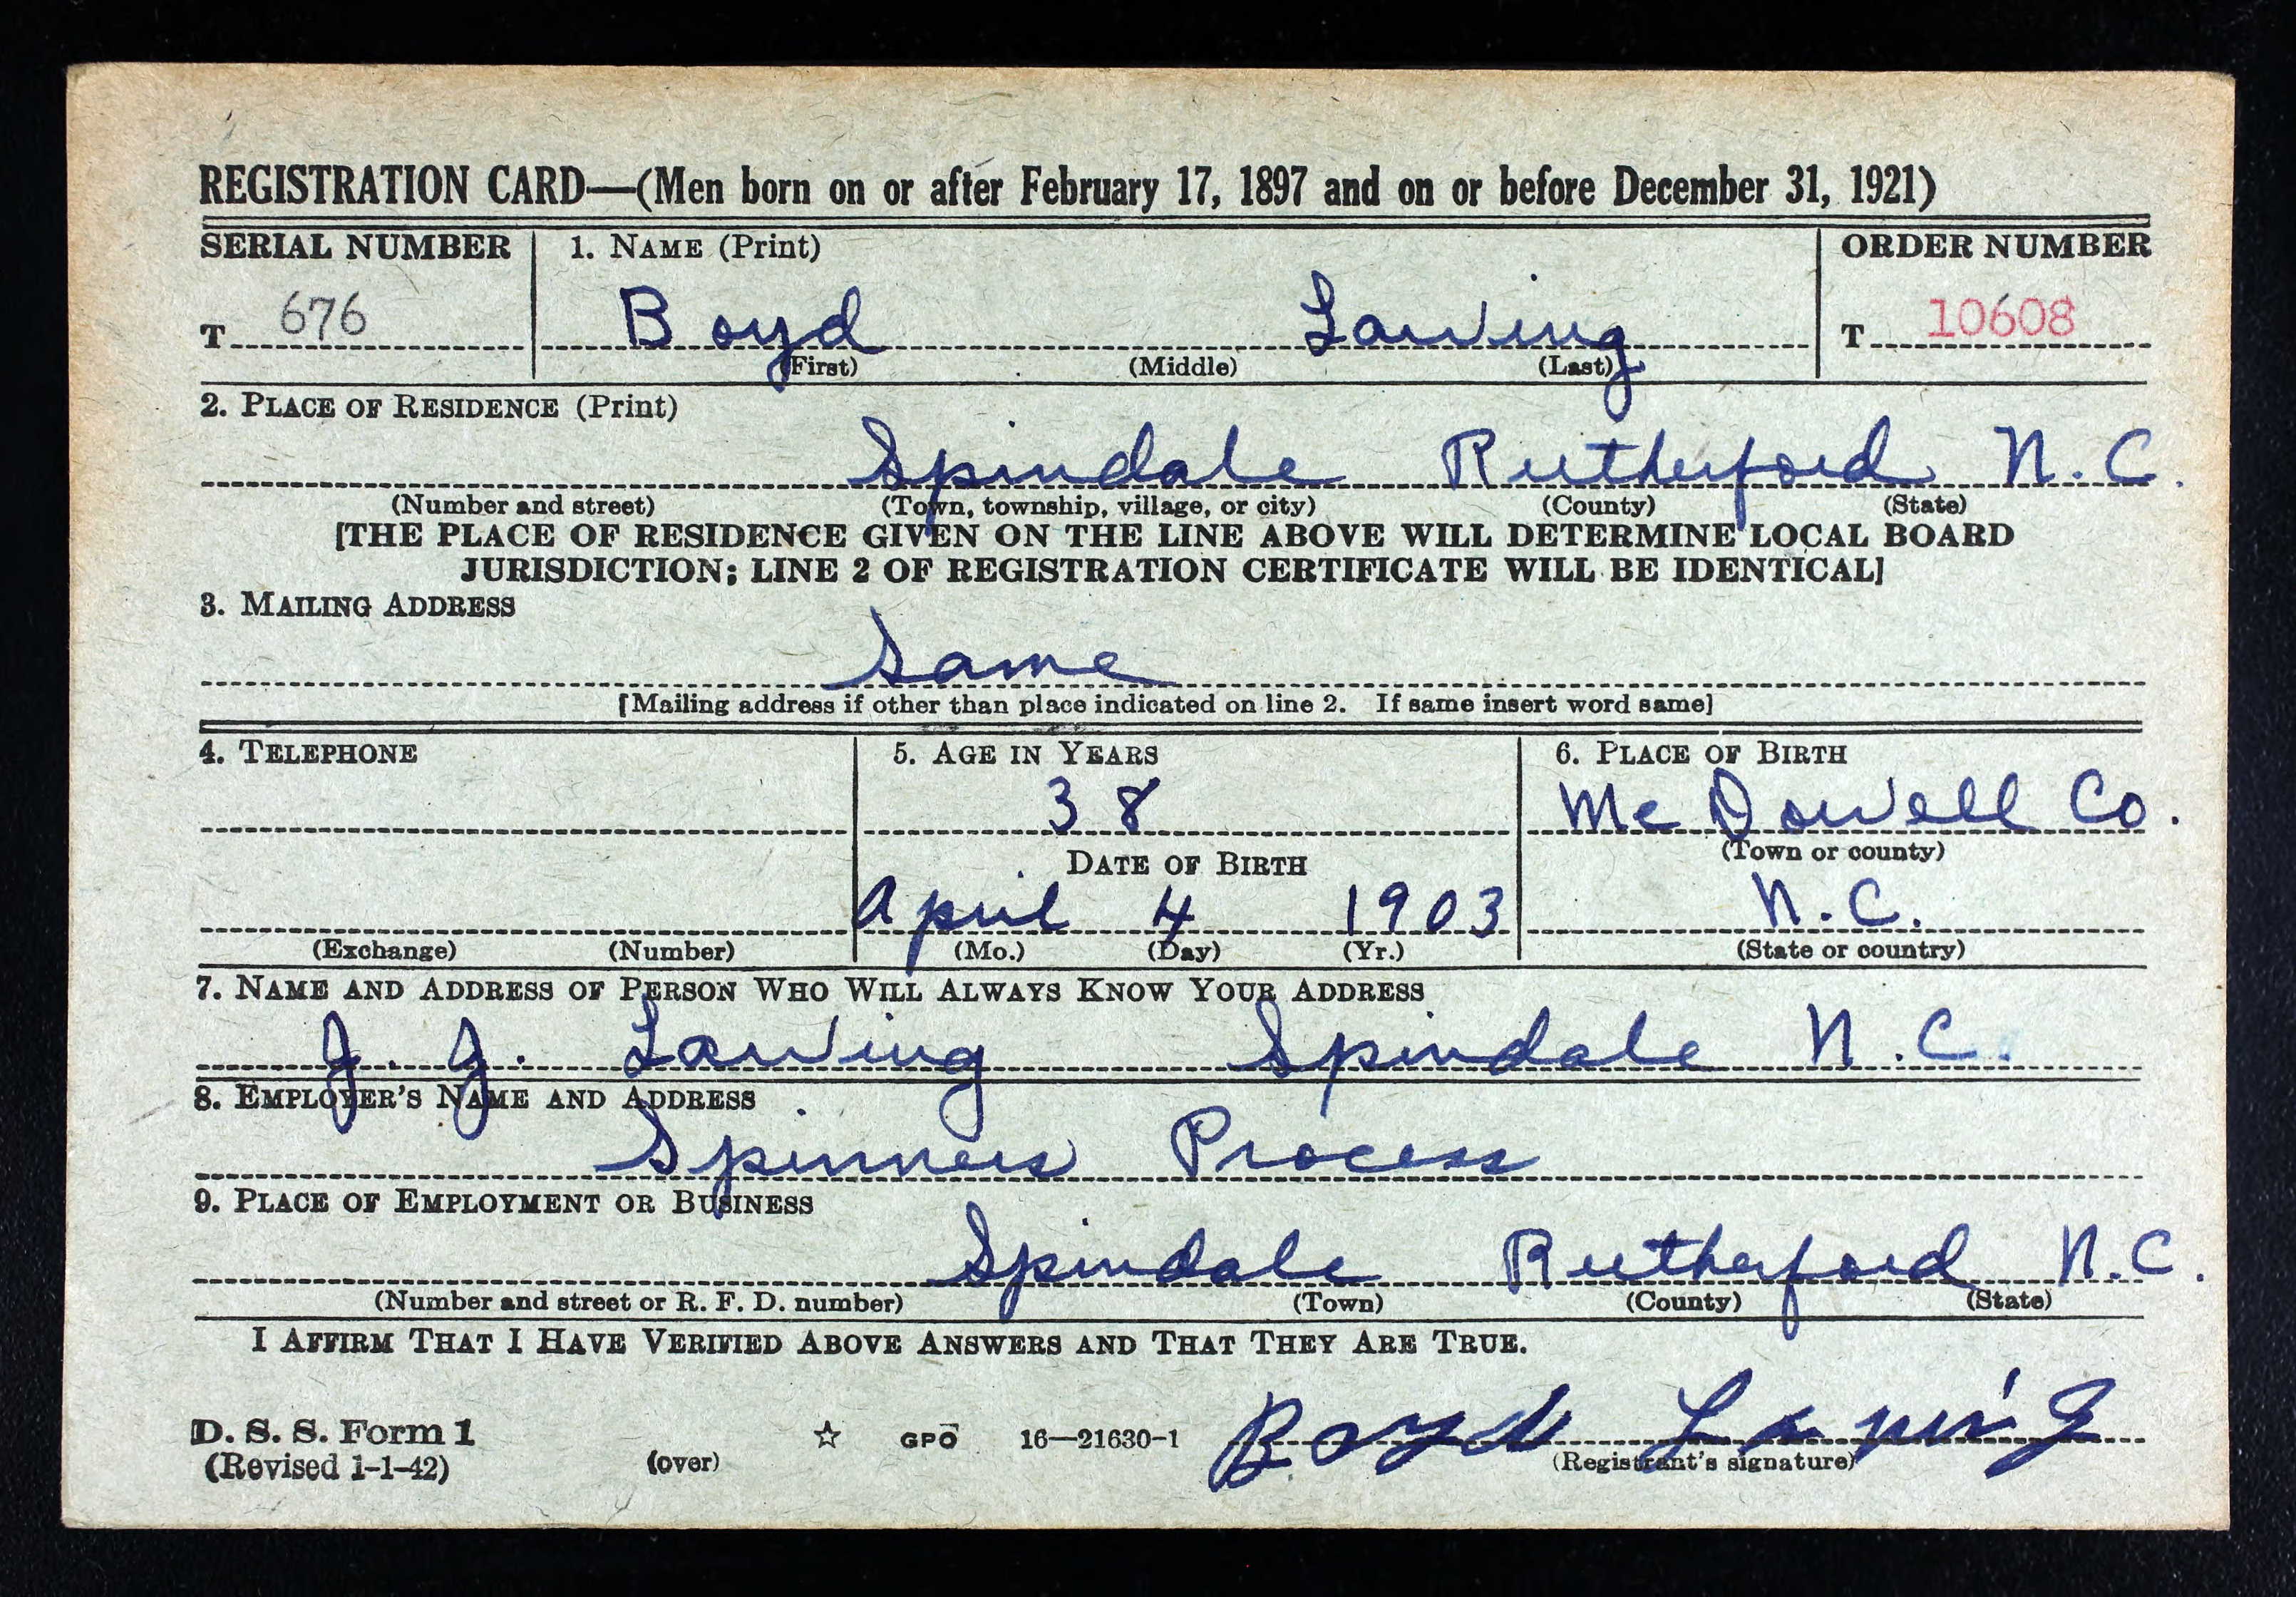 REGISTRATION CARD—(Men born on or after February 17, 1897 and on or before December 31, 1921)
SERIAL NUMBER 1. NAME (Print) ORDER NUMBER
T 676 Boyd Lawing T 10608
(First) (Middle) (Last)
2. PLACE OF RESIDENCE (Print)
Spindale Rutherford N.C.
(Number and street) (Town, township, village, or city) (County) (State)
[THE PLACE OF RESIDENCE GIVEN ON THE LINE ABOVE WILL DETERMINE LOCAL BOARD
JURISDICTION; LINE 2 OF REGISTRATION CERTIFICATE WILL BE IDENTICAL]
3. MAILING ADDRESS
Same
[Mailing address if other than place indicated on line 2. If same insert word same]
4. TELEPHONE 5. AGE IN YEARS 6. PLACE OF BIRTH
38 McDowell Co.
DATE OF BIRTH (Town or county)
April 4 1903 N.C.
(Exchange) (Number) (Mo.) (Day) (Yr.) (State or country)
7. NAME AND ADDRESS OF PERSON WHO WILL ALWAYS KNOW YOUR ADDRESS
J. J. Lawing Spindale N.C.
8. EMPLOYER'S NAME AND ADDRESS
Spinners Process
9. PLACE OF EMPLOYMENT OR BUSINESS
Spindale Rutherford N.C.
(Number and street or R. F. D. number) (Town) (County) (State)
I AFFIRM THAT I HAVE VERIFIED ABOVE ANSWERS AND THAT THEY ARE TRUE.
D. S. S. Form 1 ☆ GPO 16—21630-1 Boyd Lawing
(Revised 1-1-42) (over) (Registrant's signature)